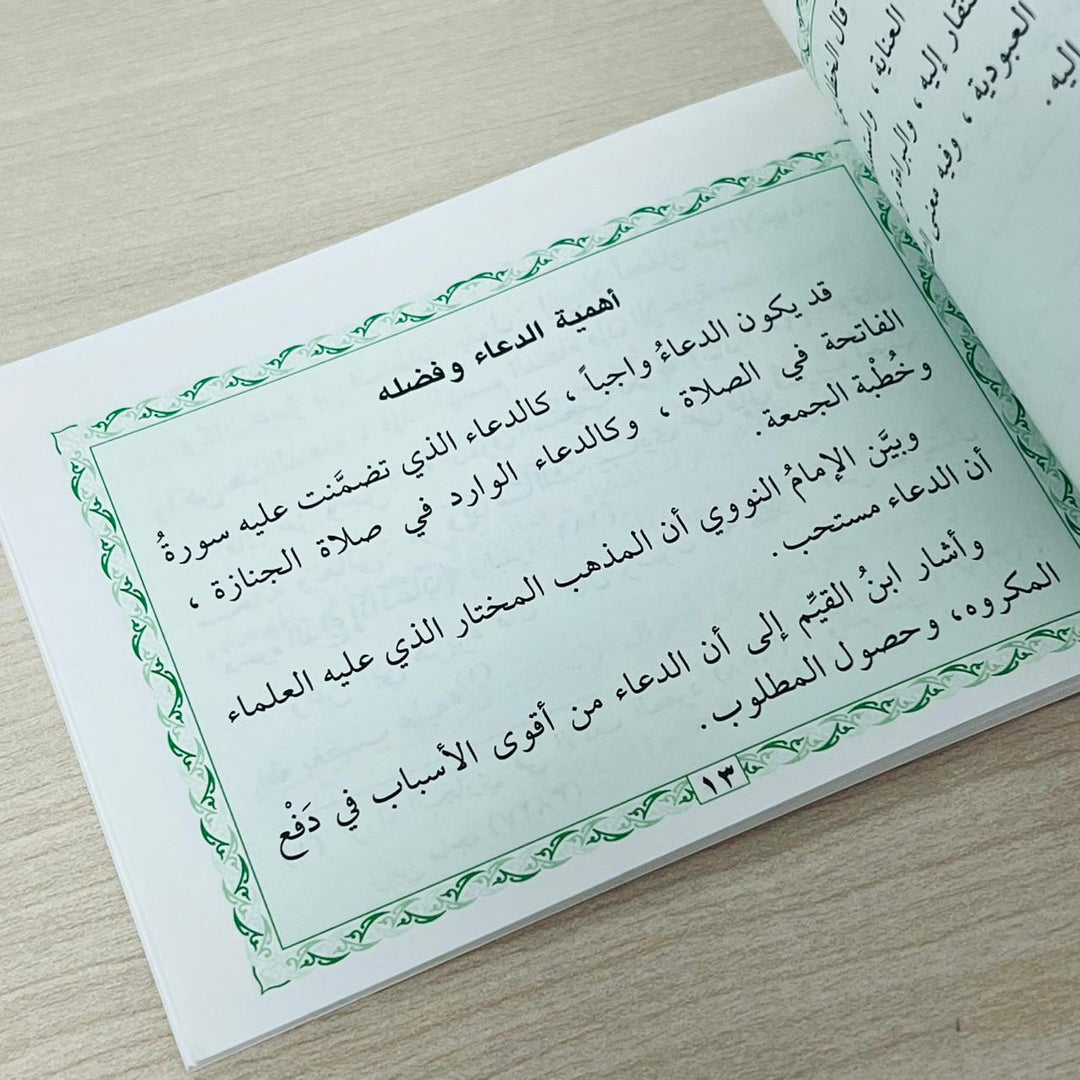 أهمية الدعاء وفضله
قد يكون الدعاءُ واجباً ، كالدعاء الذي تضمَّنت عليه سورةُ
الفاتحة في الصلاة ، وكالدعاء الوارد في صلاة الجنازة ،
وخُطْبة الجمعة.
وبيَّن الإمامُ النووي أن المذهب المختار الذي عليه العلماء
أن الدعاء مستحب.
وأشار ابنُ القيِّم إلى أن الدعاء من أقوى الأسباب في دَفْع
المكروه، وحصول المطلوب.
١٣
قال
العناية ،
إليه ،
العبودية ، وفيه معنى
إليه .